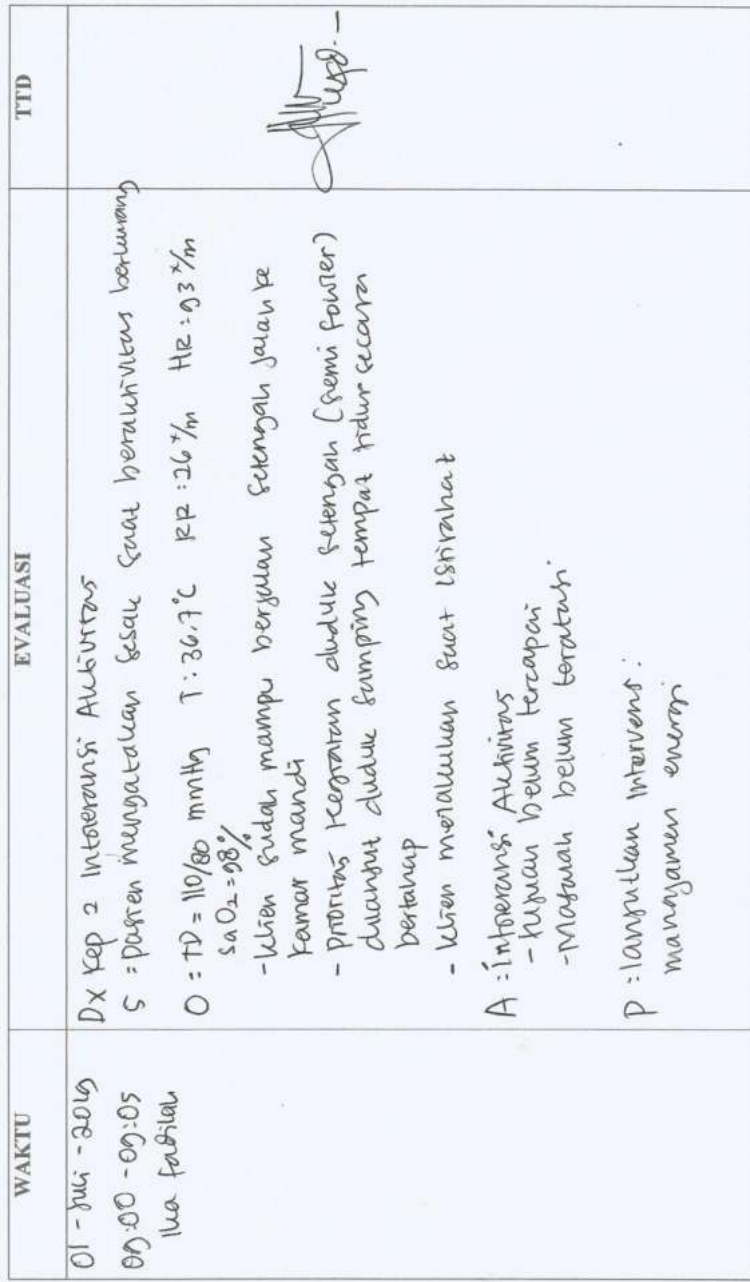 WAKTU
EVALUASI
TTD
01 - Juli - 2019
09:00 - 09:05
Ika fadilah
Dx Kep 2 Intoleransi Aktivitas
S : pasien mengatakan sesak saat beraktivitas berkurang
O : TD = 110/80 mmHg T : 36,7°C RR : 26 x/m HR : 93 x/m
SaO2 = 98%
- klien sudah mampu berjalan setengah jalan ke
kamar mandi
- prioritas kegiatan duduk setengah (semi fowler)
dilanjut duduk samping tempat tidur secara
bertahap
- klien melakukan saat istirahat
A : intoleransi Aktivitas
- tujuan belum tercapai
- masalah belum teratasi
P : lanjutkan intervensi :
manajamen energi